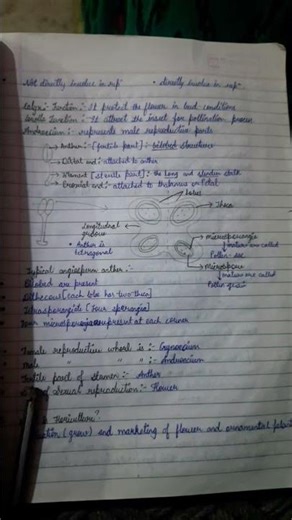 Not directly involve in repⁿ • directly involve in repⁿ
Calyx :- Function :- It protect the flower in bud conditions
Function :- It attract the insect for pollination process
Androecium :- represents male reproductive parts
Anther :- [fertile part] :- bilobed structure
Distal end :- attached to anther
filament [sterile part] :- the long and slender stalk
Proximal end :- attached to thalamus or Petal
Theca
Longitudinal groove
• Anther is tetragonal
Microsporangia
↳ mature are called
Pollen-sac
Microspore
↳ mature are called
Pollen grain
Typical angiosperm anther :-
Bilobed are present
Dithecous [each lobe has two then]
Tetrasporangiate [four sporangia]
Four microsporangia present at each corner
Female reproductive whorl is :- Gynoecium
" " :- Androecium
Fertile part of stamen :- Anther
sexual reproduction :- Flower
Floriculture?
(grow) and marketing of flower and ornamental